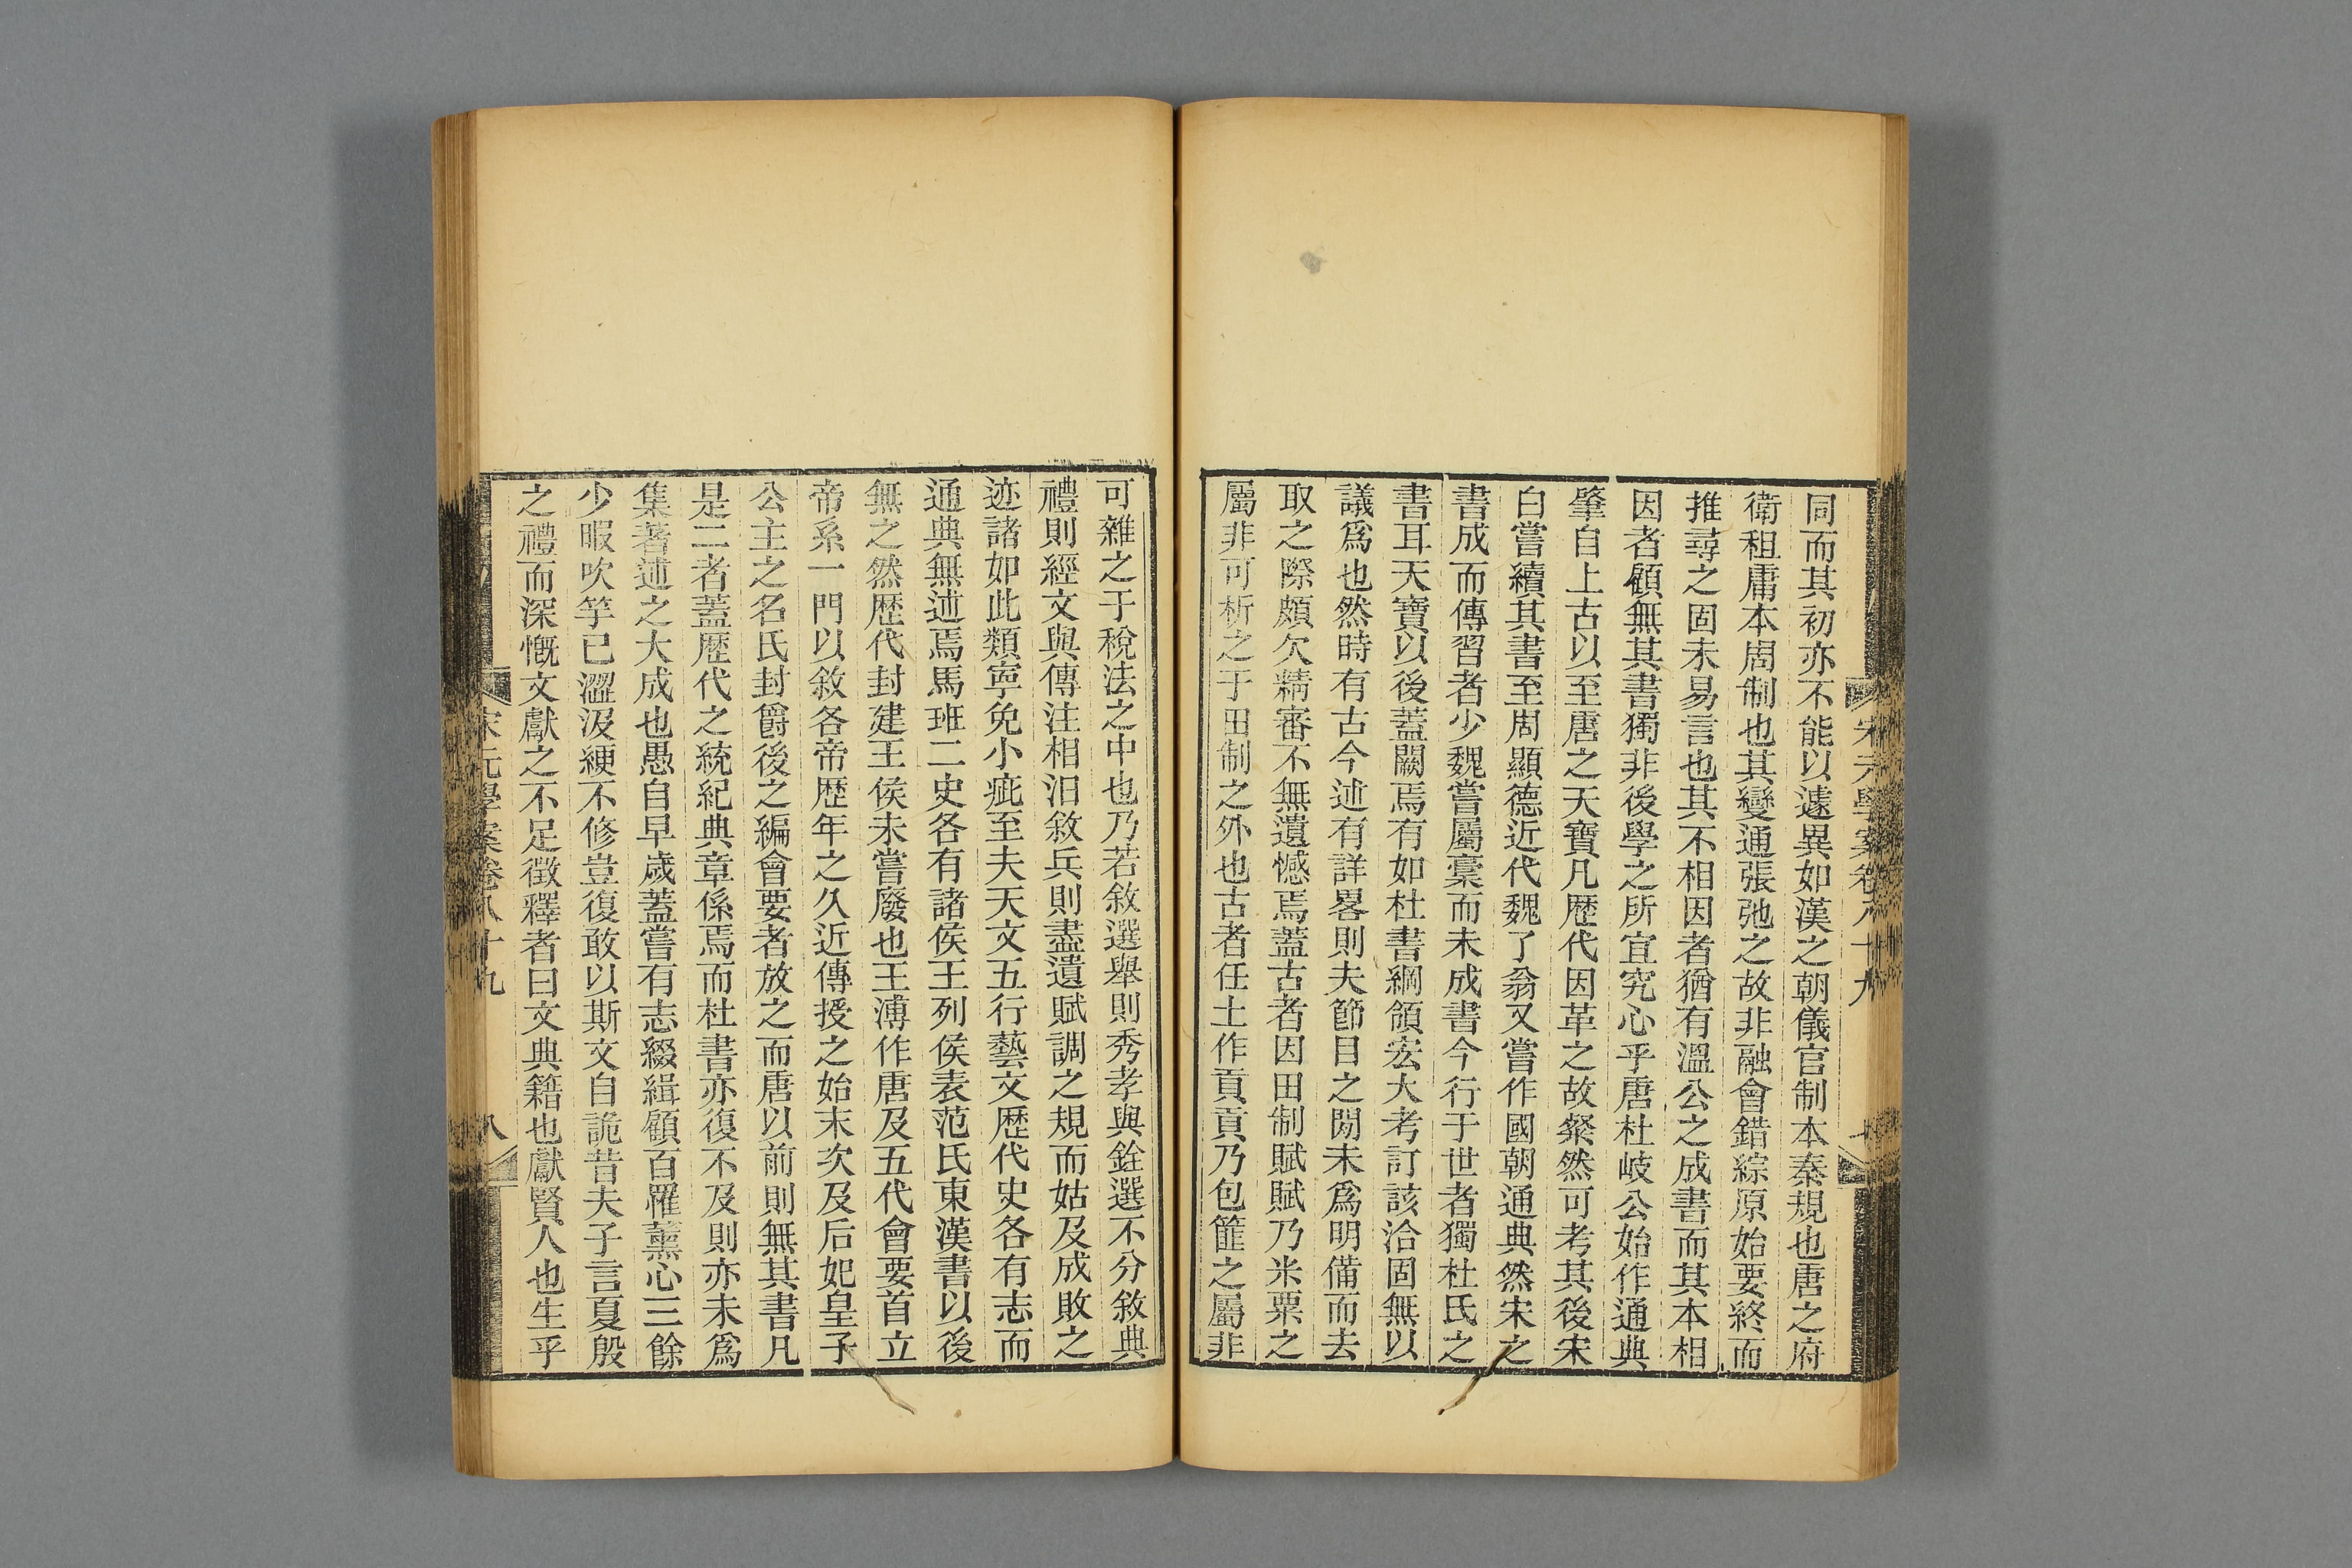 宋元學案卷八十九
同而其初亦不能以遽異如漢之朝儀官制本秦規也唐之府
衛租庸本周制也其變通張弛之故非融會錯綜原始要終而
推尋之固未易言也其不相因者猶有溫公之成書而其本相
因者顧無其書獨非後學之所宜究心乎唐杜岐公始作通典
肇自上古以至唐之天寶凡歷代因革之故粲然可考其後宋
白嘗續其書至周顯德近代魏了翁又嘗作國朝通典然宋之
書成而傳習者少魏嘗屬稾而未成書今行于世者獨杜氏之
書耳天寶以後蓋闕焉有如杜書綱領宏大考訂該洽固無以
議爲也然時有古今述有詳畧則夫節目之閒未爲明備而去
取之際頗欠精審不無遺憾焉蓋古者因田制賦賦乃米粟之
屬非可析之于田制之外也古者任土作貢貢乃包篚之屬非
可雜之于稅法之中也乃若敘選舉則秀孝與銓選不分敘典
禮則經文與傳注相汨敘兵則盡遺賦調之規而姑及成敗之
迹諸如此類寧免小疵至夫天文五行藝文歷代史各有志而
通典無述焉馬班二史各有諸侯王列侯表范氏東漢書以後
無之然歷代封建王侯未嘗廢也王溥作唐及五代會要首立
帝系一門以敘各帝歷年之久近傳授之始末次及后妃皇子
公主之名氏封爵後之編會要者放之而唐以前則無其書凡
是二者蓋歷代之統紀典章係焉而杜書亦復不及則亦未爲
集著述之大成也愚自早歲蓋嘗有志綴緝顧百罹薰心三餘
少暇吹竽已澀汲綆不修豈復敢以斯文自詭昔夫子言夏殷
之禮而深慨文獻之不足徵釋者曰文典籍也獻賢人也生乎
宋元學案卷八十九
八